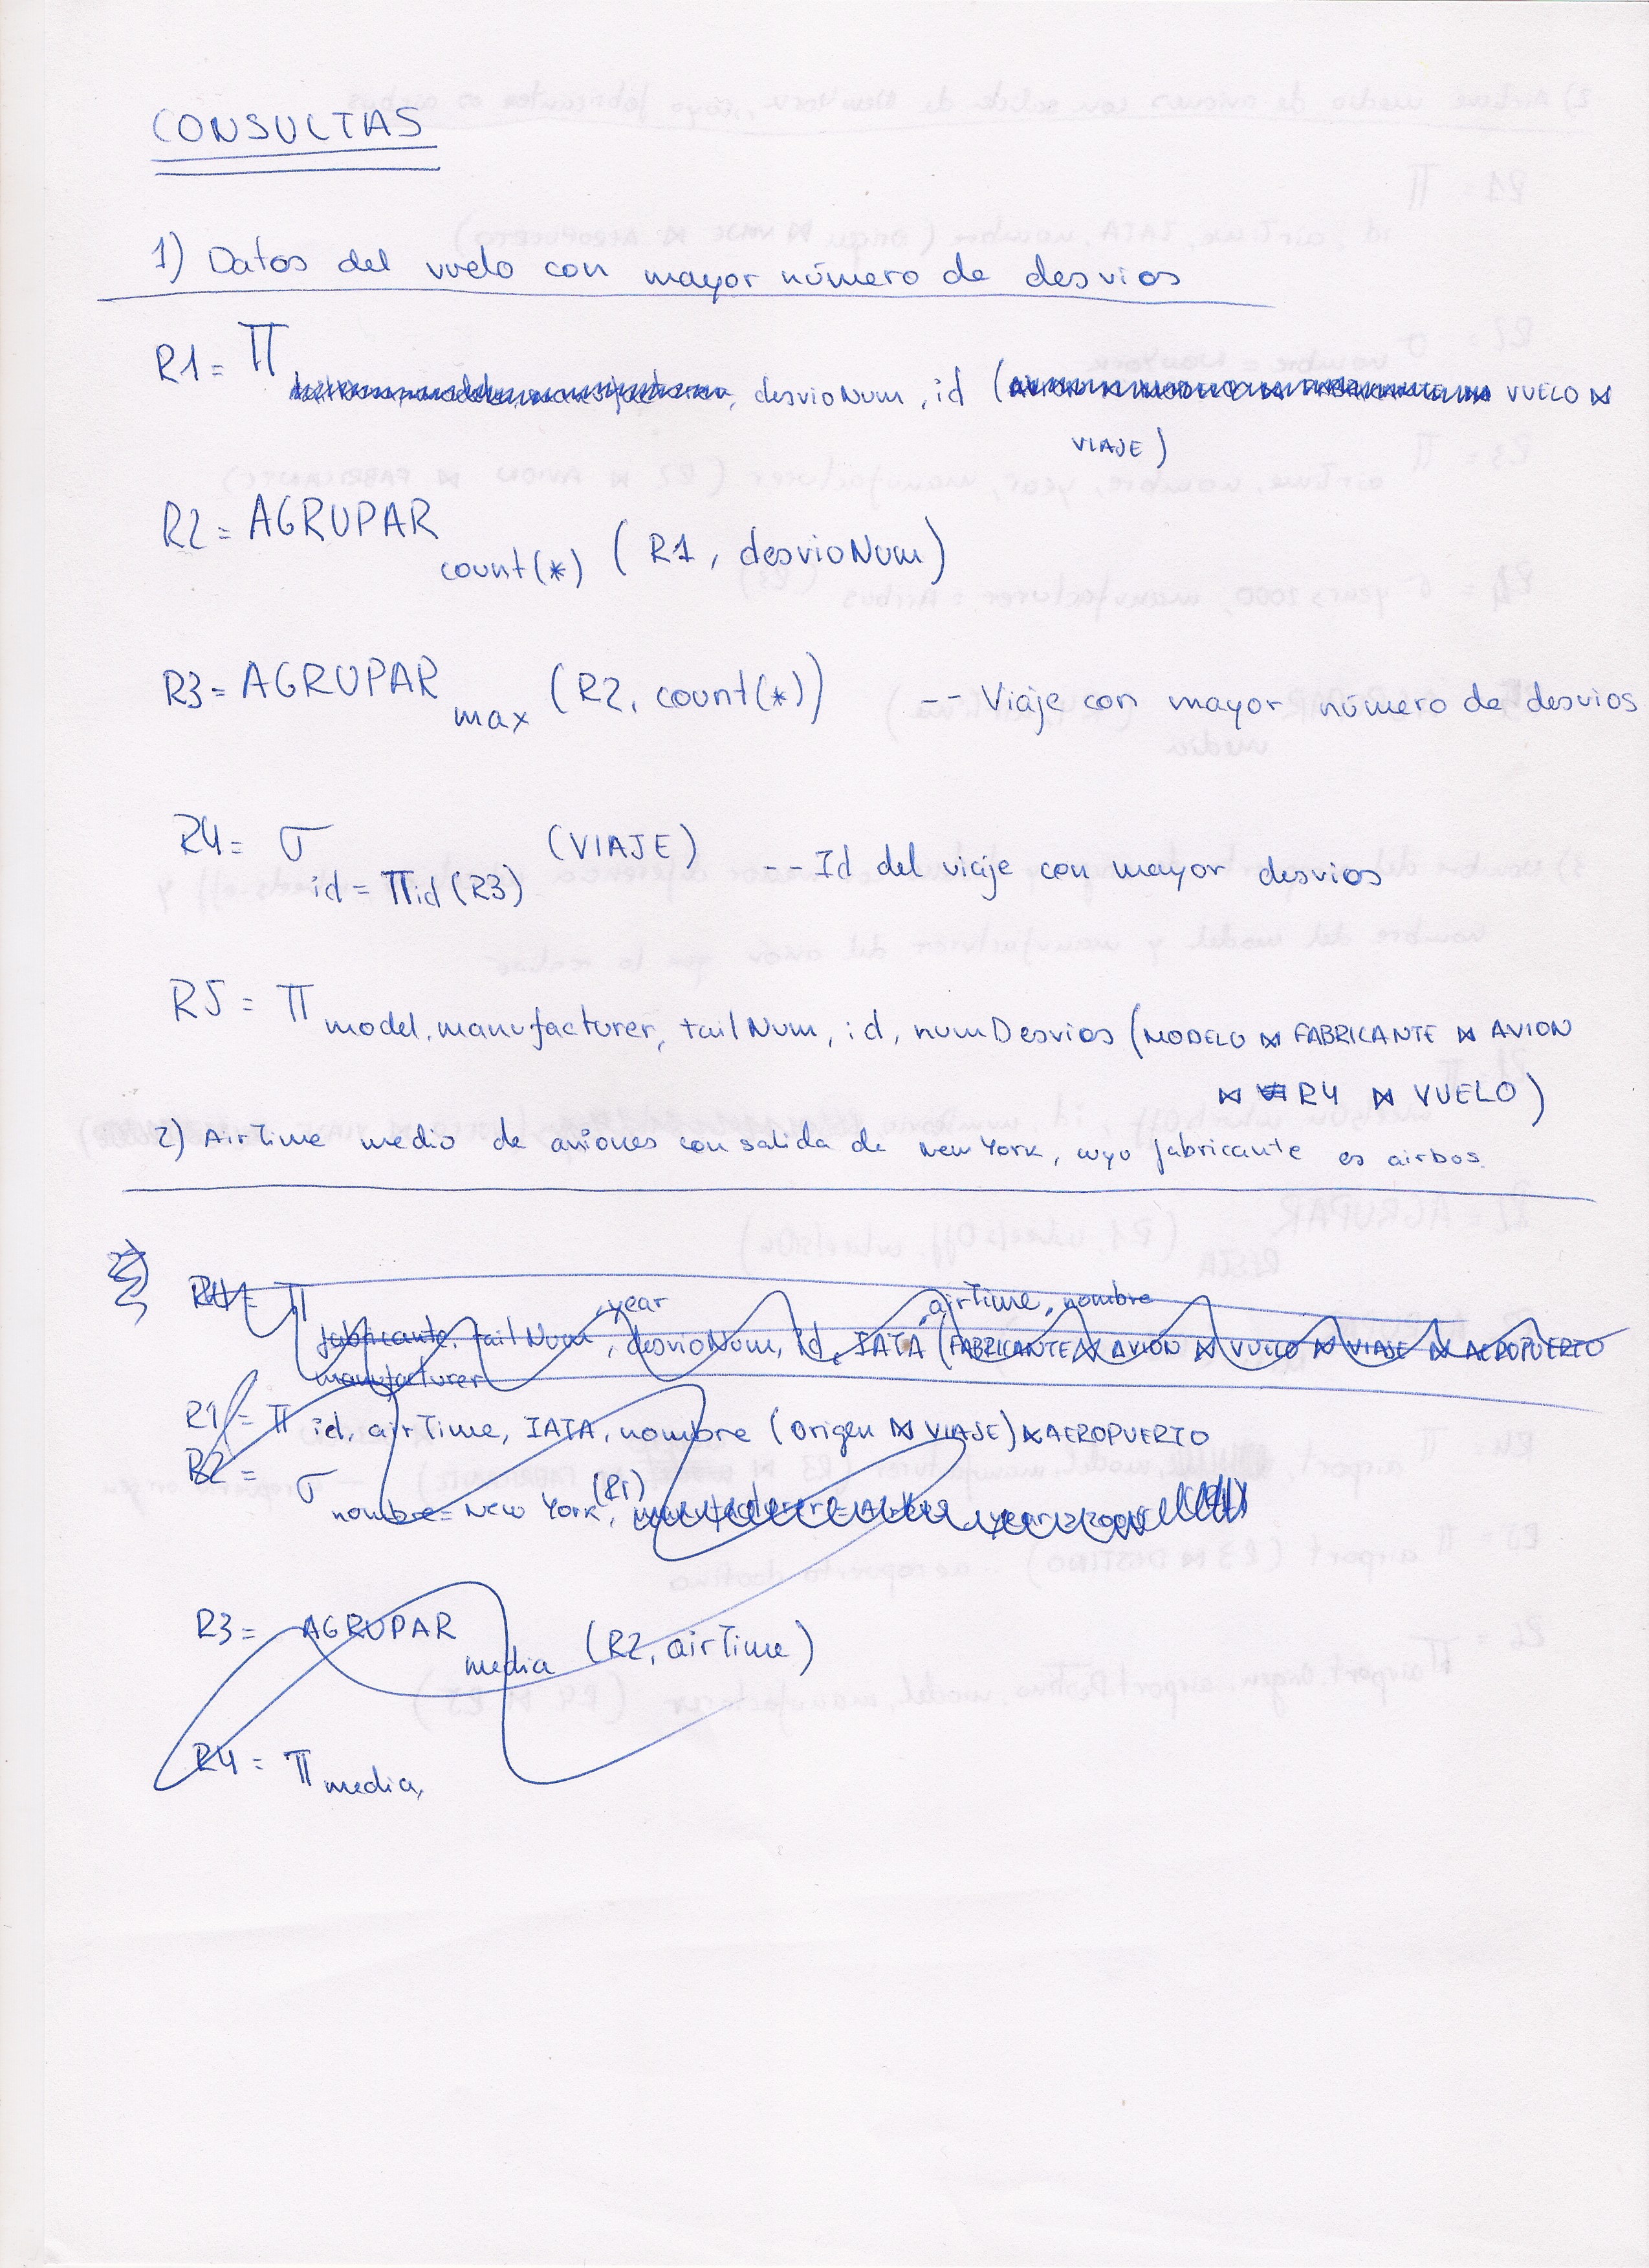 CONSULTAS
1) Datos del vuelo con mayor número de desvios
R1 = π desvioNum, id ( VUELO ⋈
VIAJE)
R2 = AGRUPAR count(*) (R1, desvioNum)
R3 = AGRUPAR max (R2, count(*)) -- Viaje con mayor número de desvios
R4 = σ id = πid (R3) (VIAJE) -- Id del viaje con mayor desvios
R5 = π model, manufacturer, tailNum, id, numDesvios (MODELO ⋈ FABRICANTE ⋈ AVION
⋈ R4 ⋈ VUELO)
2) AirTime medio de aviones con salida de New York, cuyo fabricante es airbos.
year airTime, nombre
R1 = π fabricante, tailNum, desvioNum, id, IATA (FABRICANTE ⋈ AVION ⋈ VUELO ⋈ VIAJE ⋈ AEROPUERTO
manufacturer
R1 = π id, airTime, IATA, nombre (origen ⋈ VIAJE) ⋈ AEROPUERTO
R2 = σ nombre = New York, (R1)
R3 = AGRUPAR media (R2, airTime)
R4 = π media,